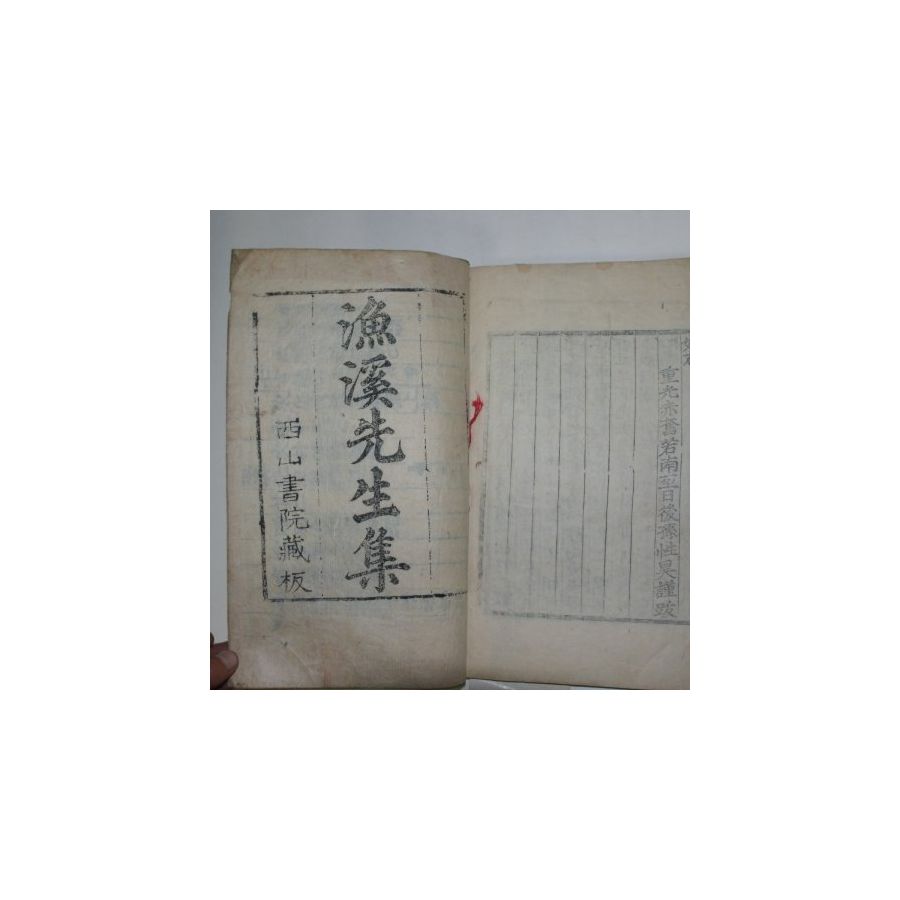 重光赤奮若南至日後孫性昊謹跋
漁溪先生集
西山書院藏板